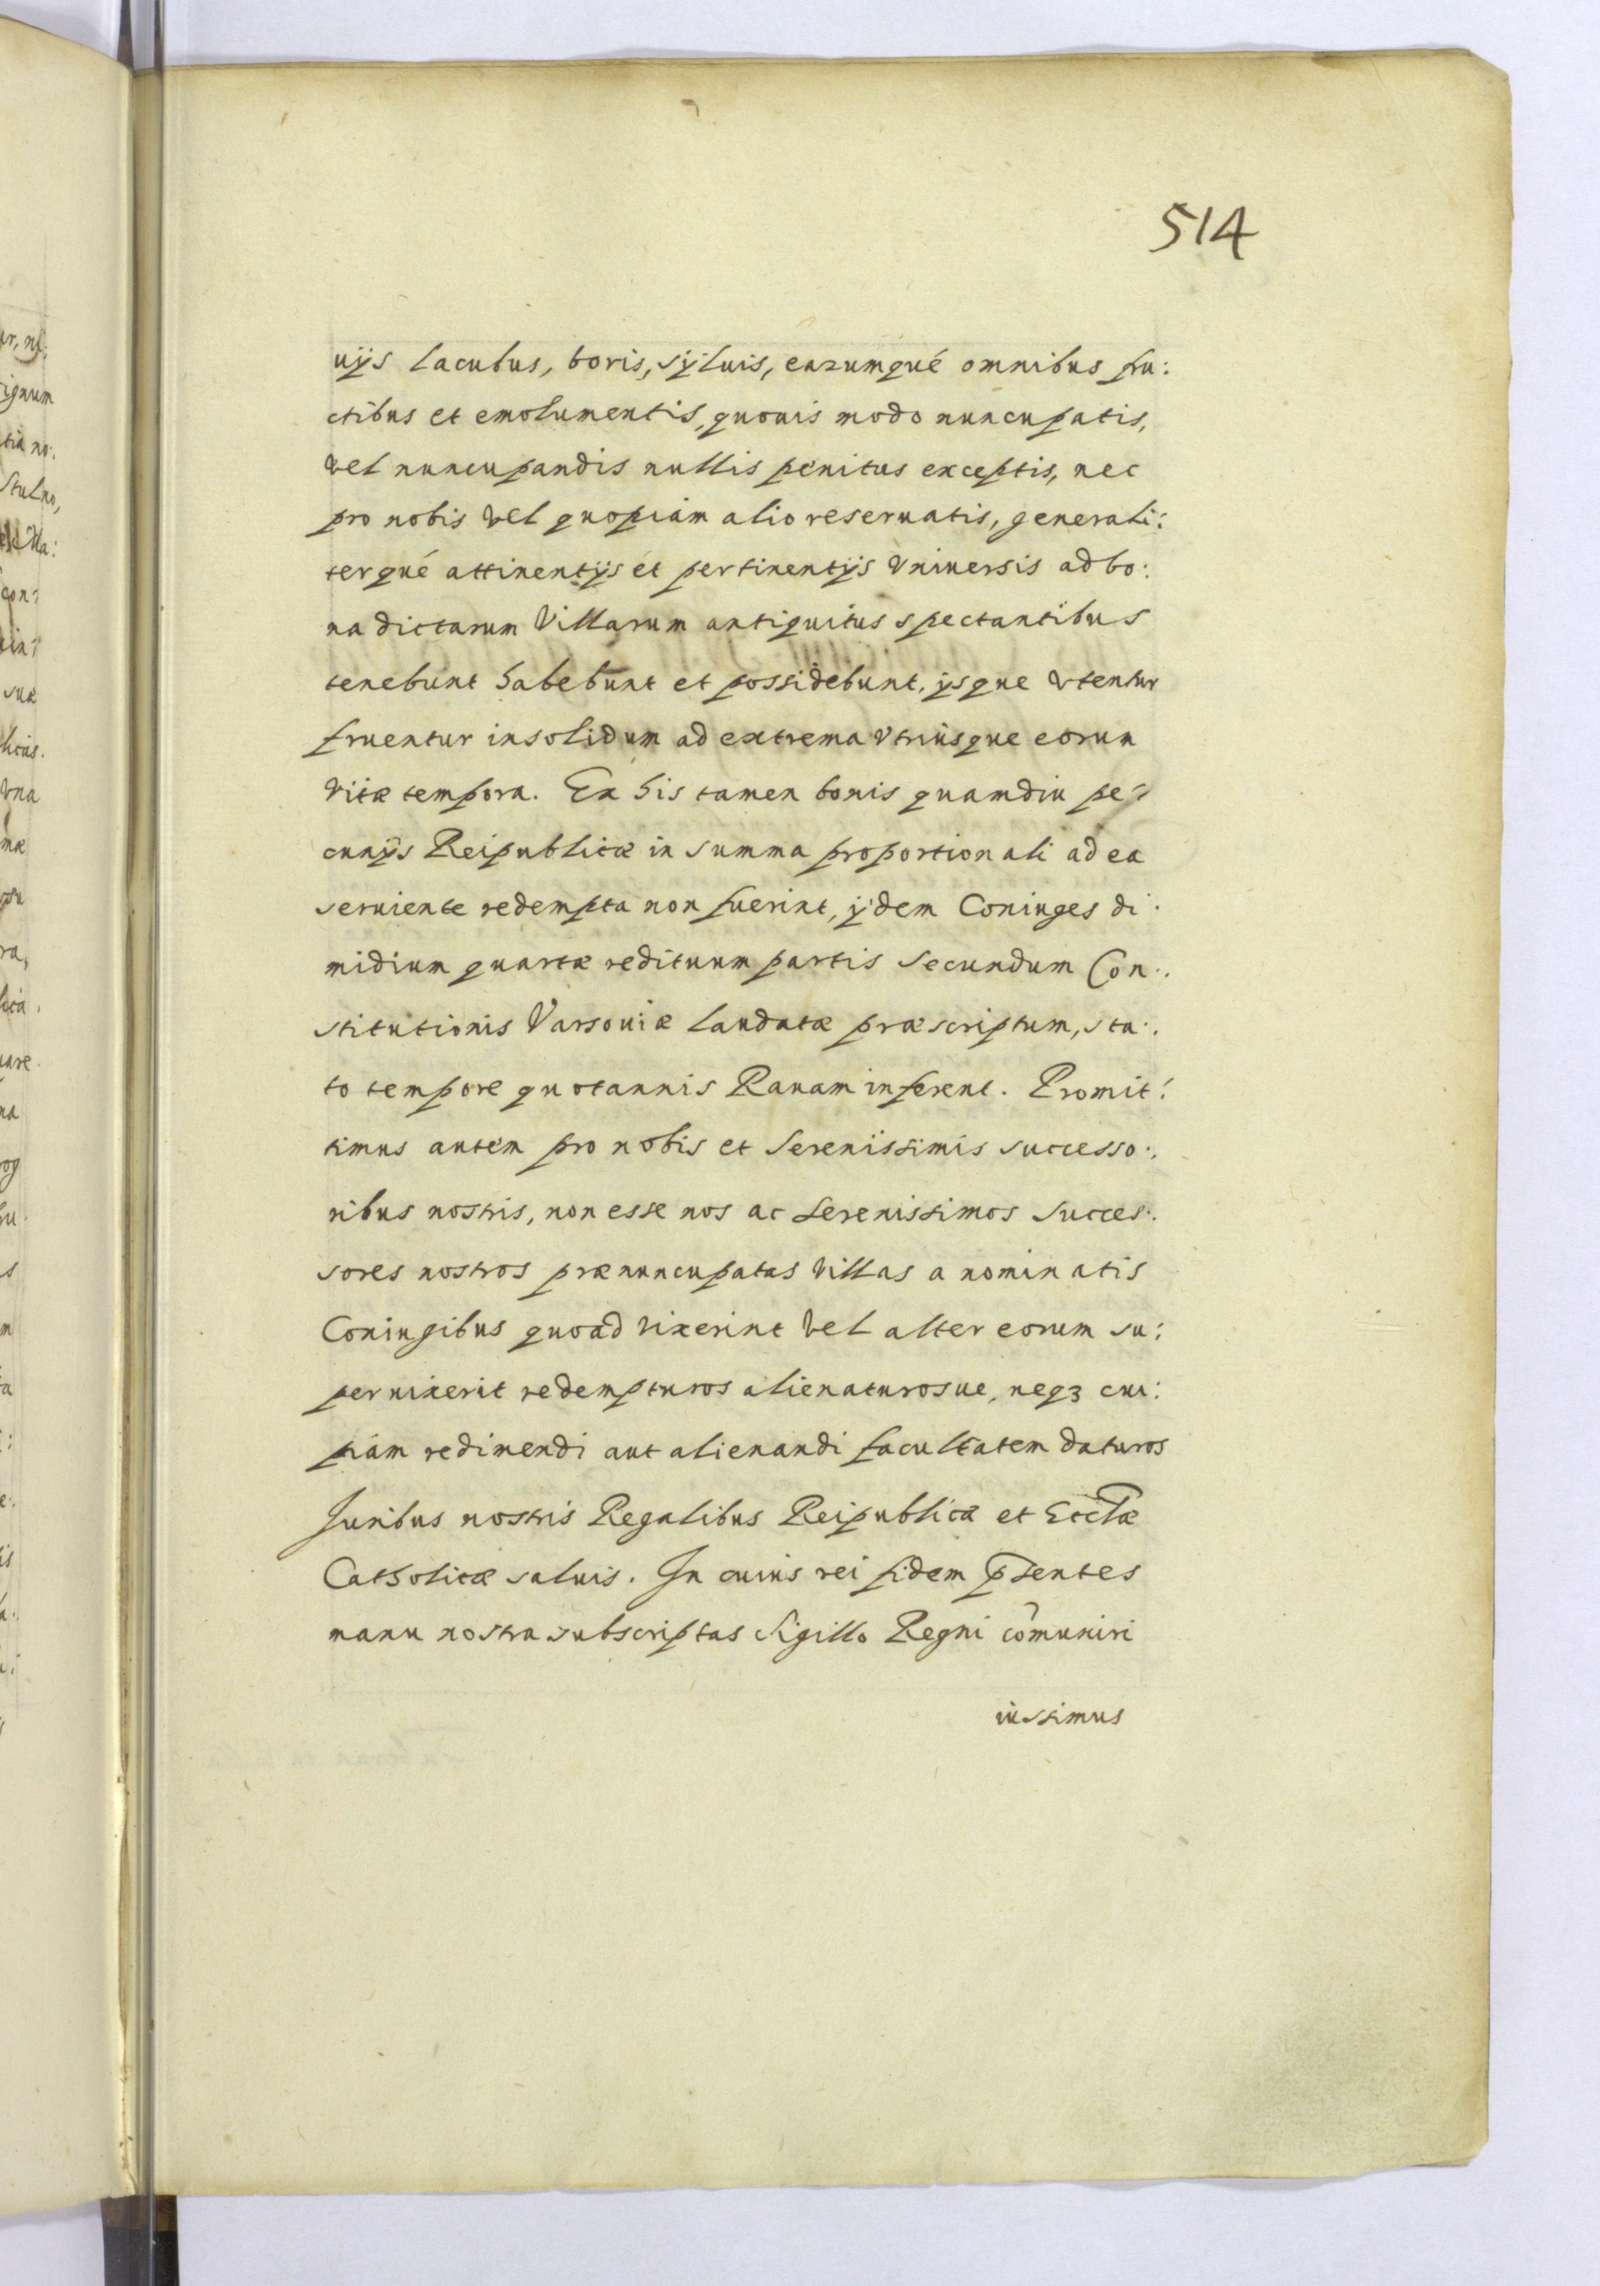 514
uijs lacubus, boris, sÿluis, earumqué omnibus fru:
ctibus et emolumentis, quouis modo nuncupatis,
vel nuncupandis nullis penitus exceptis, nec
pro nobis vel quopiam alio reseruatis, generali:
terqué attinentijs et pertinentijs vniuersis ad bo:
na dictarum Villarum antiquitus spectantibus
tenebunt habebunt et possidebunt, ijsque vtentur
fruentur insolidum ad extrema vtriusque eorum
vitæ tempora. Ex his tamen bonis quamdiu pe:
cunijs Reipublicæ in summa proportionali ad ea
seruiente redempta non fuerint, ijdem Coniuges di:
midium quartæ redituum partis secundum Con:
stitutionis Varsouiæ laudatæ præscriptum, sta:
to tempore quotannis Rauam inferent. Promit:
timus autem pro nobis et Serenissimis successo:
ribus nostris, non esse nos ac Serenissimos Succes:
sores nostros prænuncupatas villas a nominatis
Coniugibus quoad vixerint vel alter eorum su:
peruixerit redempturos alienaturosue, neqꝫ cui:
piam redimendi aut alienandi facultatem daturos
Iuribus nostris Regalibus Reipublicæ et Eccl̃æ
Catholicæ saluis. In cuius rei fidem p̃sentes
manu nostra subscriptas Sigillo Regni com̃uniri
iussimus